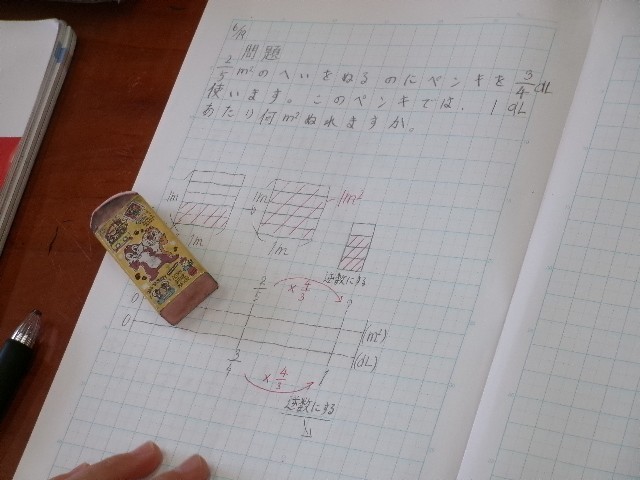 6/9
問題
2/5 m²のへいをぬるのにペンキを3/4dL
使います。このペンキでは、1dL
あたり何m²ぬれますか。
1m
1m
1m
1m
1m²
逆数にする
2/5 ×4/3 ?
0 (m²)
0 (dL)
3/4 ×4/3 1
逆数にする